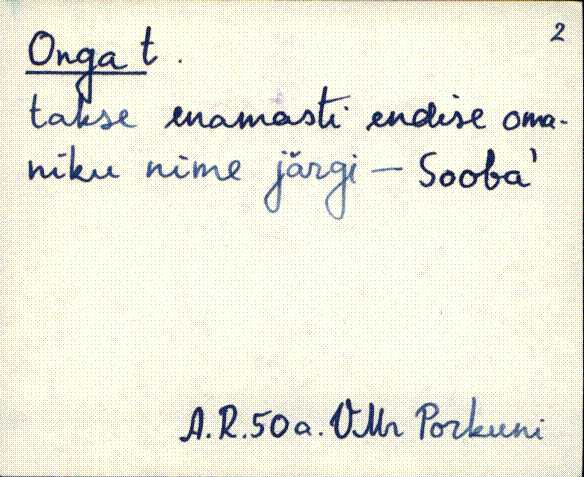 2
Onga t.
takse enamasti endise oma-
niku nime järgi – Sooba'
A.R. 50 a. VMr Porkuni